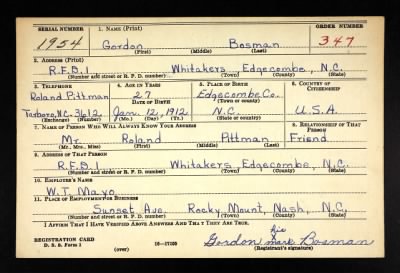 SERIAL NUMBER 1. NAME (Print) ORDER NUMBER
1954 Gordon Bosman 347
(First) (Middle) (Last)
2. ADDRESS (Print)
R.F.D. 1 Whitakers, Edgecombe, N.C.
(Number and street or R. F. D. number) (Town) (County) (State)
3. TELEPHONE 4. AGE IN YEARS 5. PLACE OF BIRTH 6. COUNTRY OF CITIZENSHIP
Roland Pittman 27 Edgecombe Co.
DATE OF BIRTH (Town or county)
Tarboro, N.C. 3612 Jan. 12, 1912 N.C. U.S.A.
(Exchange) (Number) (Mo.) (Day) (Yr.) (State or country)
7. NAME OF PERSON WHO WILL ALWAYS KNOW YOUR ADDRESS 8. RELATIONSHIP OF THAT PERSON
Mr. Roland Pittman Friend
(Mr., Mrs., Miss) (First) (Middle) (Last)
9. ADDRESS OF THAT PERSON
R.F.D. 1 Whitakers, Edgecombe, N.C.
(Number and street or R. F. D. number) (Town) (County) (State)
10. EMPLOYER'S NAME
W.T. Mayo
11. PLACE OF EMPLOYMENT OR BUSINESS
Sunset Ave. Rocky Mount, Nash, N.C.
(Number and street or R. F. D. number) (Town) (County) (State)
I AFFIRM THAT I HAVE VERIFIED ABOVE ANSWERS AND THAT THEY ARE TRUE.
his
REGISTRATION CARD Gordon mark Bosman
D. S. S. Form 1 (over) 16-17105 (Registrant's signature)